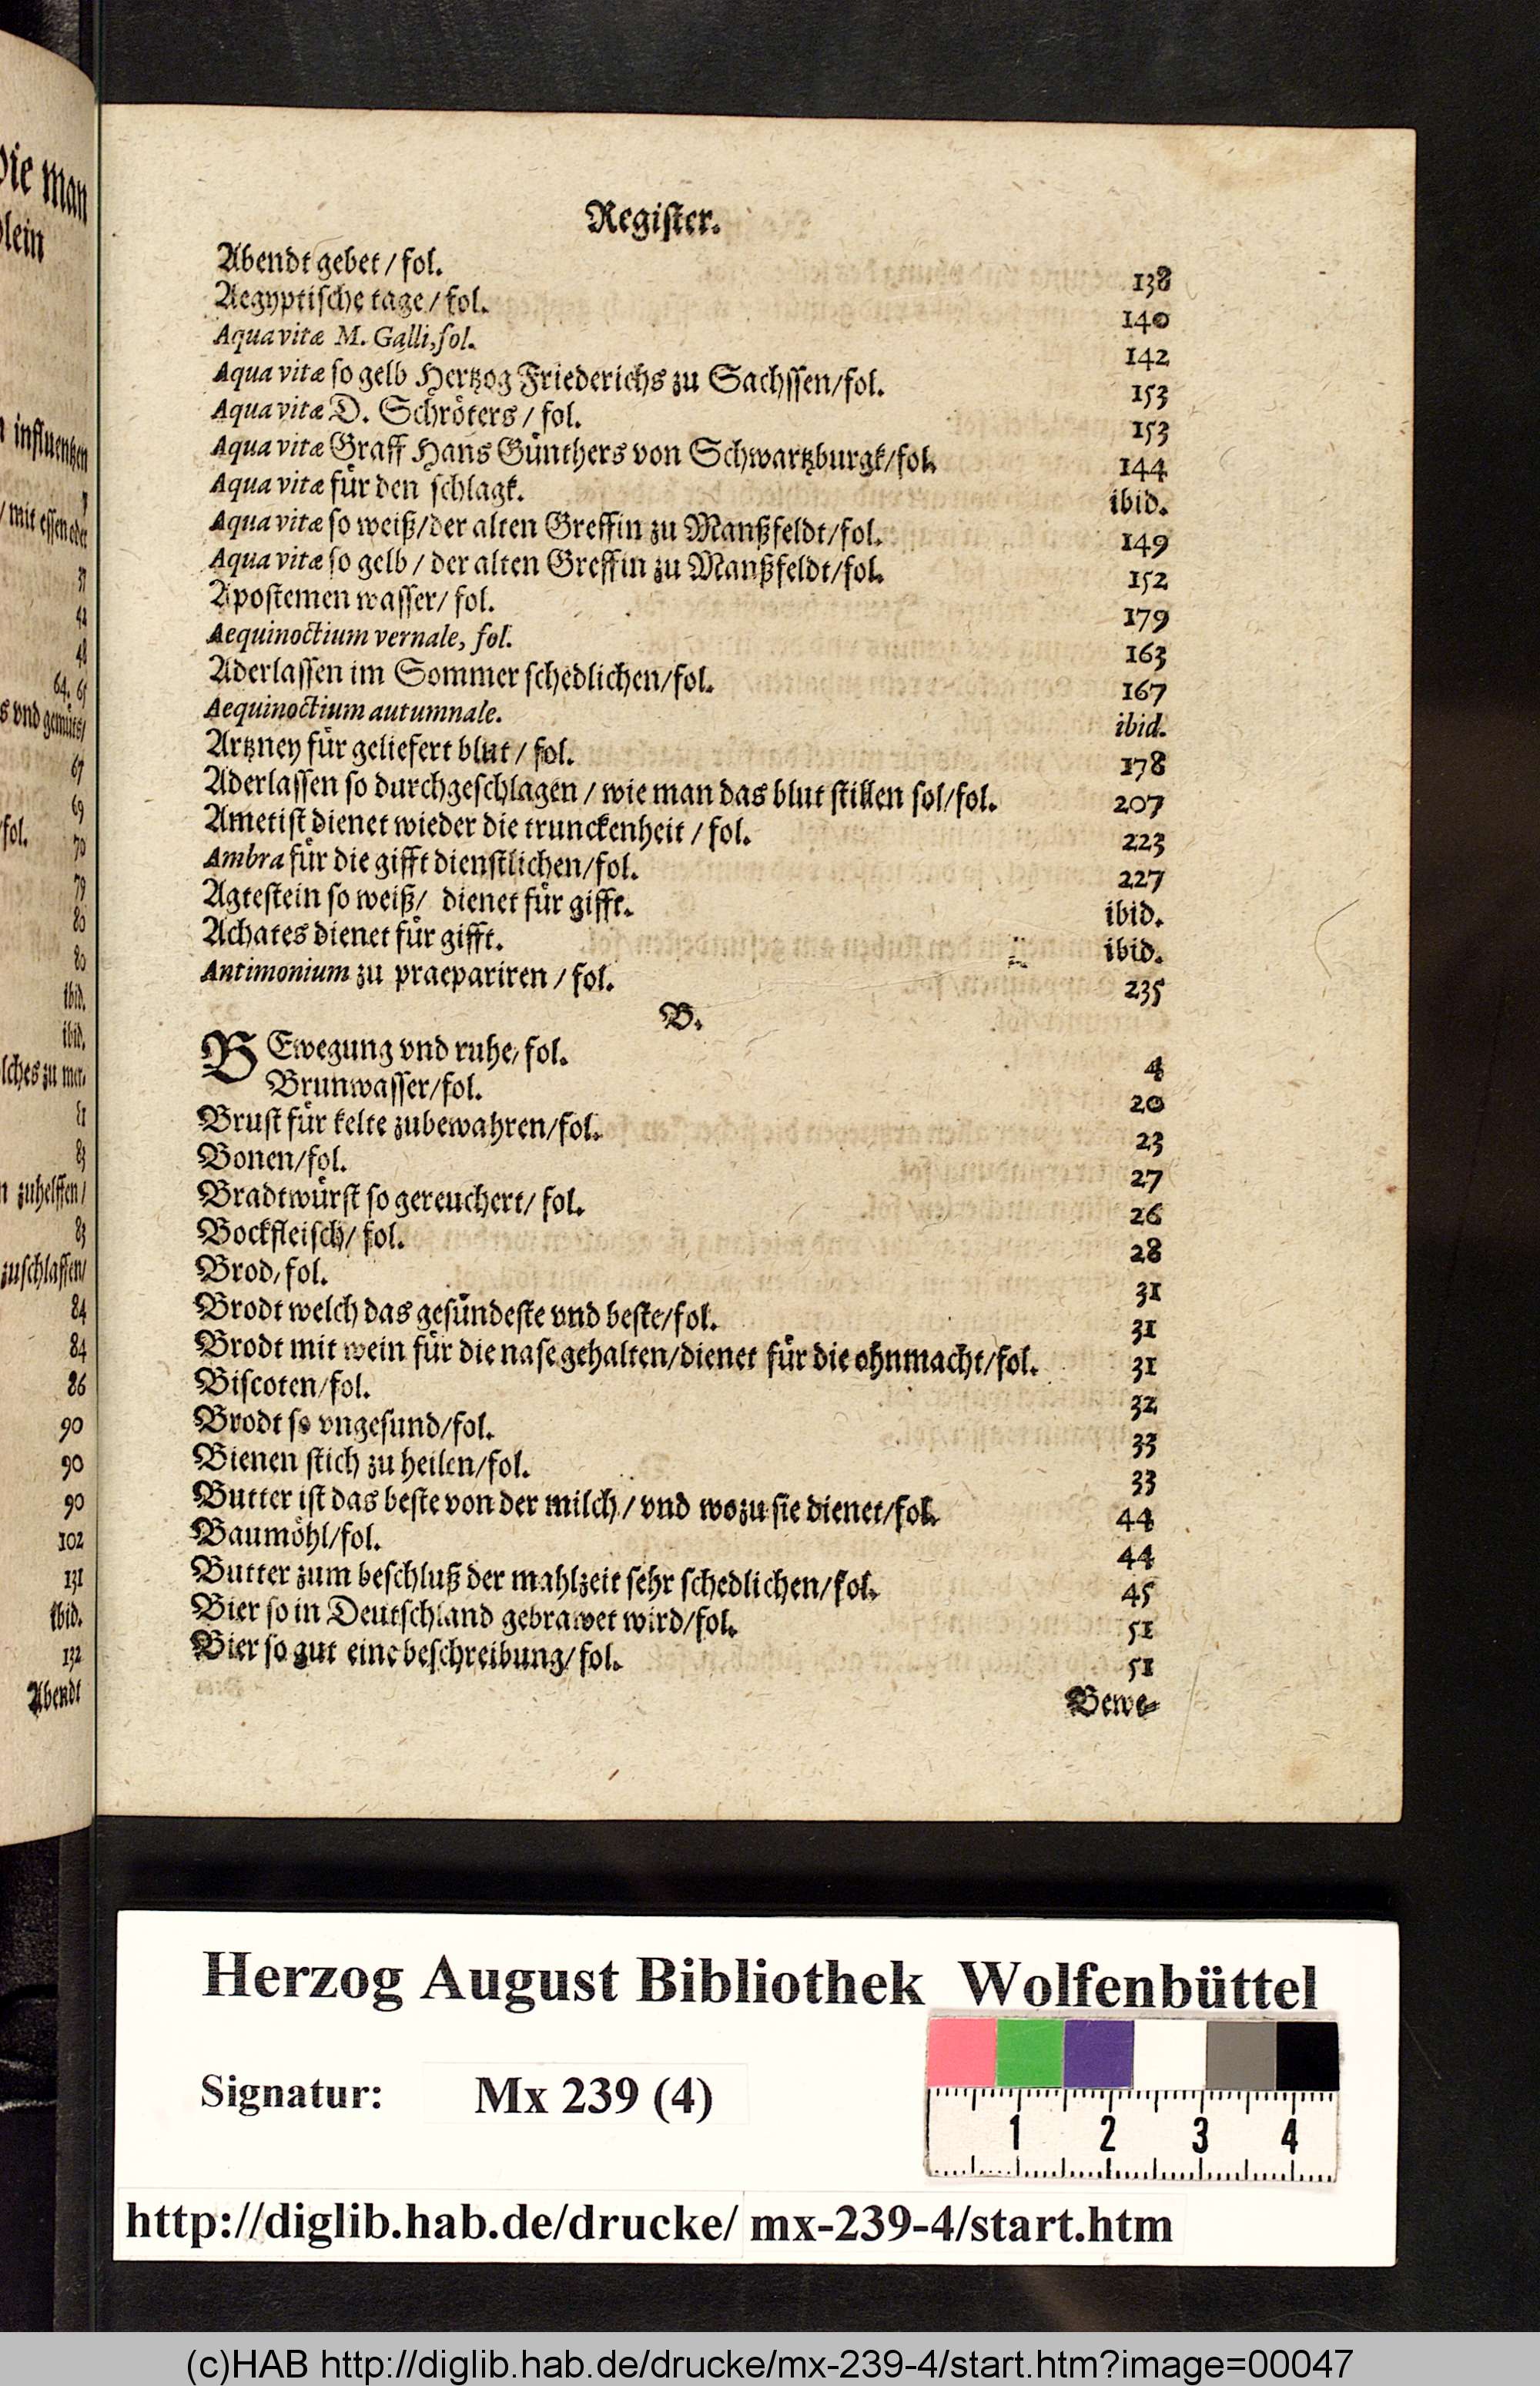 Register.
Abendt gebet / fol. 138
Aegyptische tage / fol. 140
Aqua vitæ M. Galli, fol. 142
Aqua vitæ so gelb Hertzog Friederichs zu Sachssen/fol. 153
Aqua vitæ D. Schröters / fol. 153
Aqua vitæ Graff Hans Günthers von Schwartzburgk/fol. 144
Aqua vitæ für den schlagk. ibid.
Aqua vitæ so weiß/der alten Greffin zu Manßfeldt/fol. 149
Aqua vitæ so gelb / der alten Greffin zu Manßfeldt/fol. 152
Apostemen wasser/ fol. 179
Aequinoctium vernale, fol. 163
Aderlassen im Sommer schedlichen/fol. 167
Aequinoctium autumnale. ibid.
Artzney für geliefert blut / fol. 178
Aderlassen so durchgeschlagen / wie man das blut stillen sol/fol. 207
Ametist dienet wieder die trunckenheit / fol. 223
Ambra für die gifft dienstlichen/fol. 227
Agtestein so weiß/ dienet für gifft. ibid.
Achates dienet für gifft. ibid.
Antimonium zu praepariren / fol. 235
B.
BEwegung vnd ruhe/fol. 4
Brunwasser/fol. 20
Brust für kelte zubewahren/fol. 23
Bonen/fol. 27
Bradtwürst so gereuchert/ fol. 26
Bockfleisch/ fol. 28
Brod/fol. 31
Brodt welch das gesündeste vnd beste/fol. 31
Brodt mit wein für die nase gehalten/dienet für die ohnmacht/fol. 31
Biscoten/fol. 32
Brodt so vngesund/fol. 33
Bienen stich zu heilen/fol. 33
Butter ist das beste von der milch / vnd wozu sie dienet/fol. 44
Baumöhl/fol. 44
Butter zum beschluß der mahlzeit sehr schedlichen/fol. 45
Bier so in Deutschland gebrawet wird/fol. 51
Bier so gut eine beschreibung/fol. 51
Bewe-
Die man
influentzen
/ mit essen oder
37
42
48
64. 65
s vnd gemüts/
67
69
fol. 70
79
80
80
ibid.
ibid.
83
zuhelffen/
83
zuschlaffen/
84
84
86
90
90
90
102
131
ibid.
132
Abendt
Herzog August Bibliothek Wolfenbüttel
Signatur: Mx 239 (4)
1 2 3 4
http://diglib.hab.de/drucke/ mx-239-4/start.htm
(c)HAB http://diglib.hab.de/drucke/mx-239-4/start.htm?image=00047